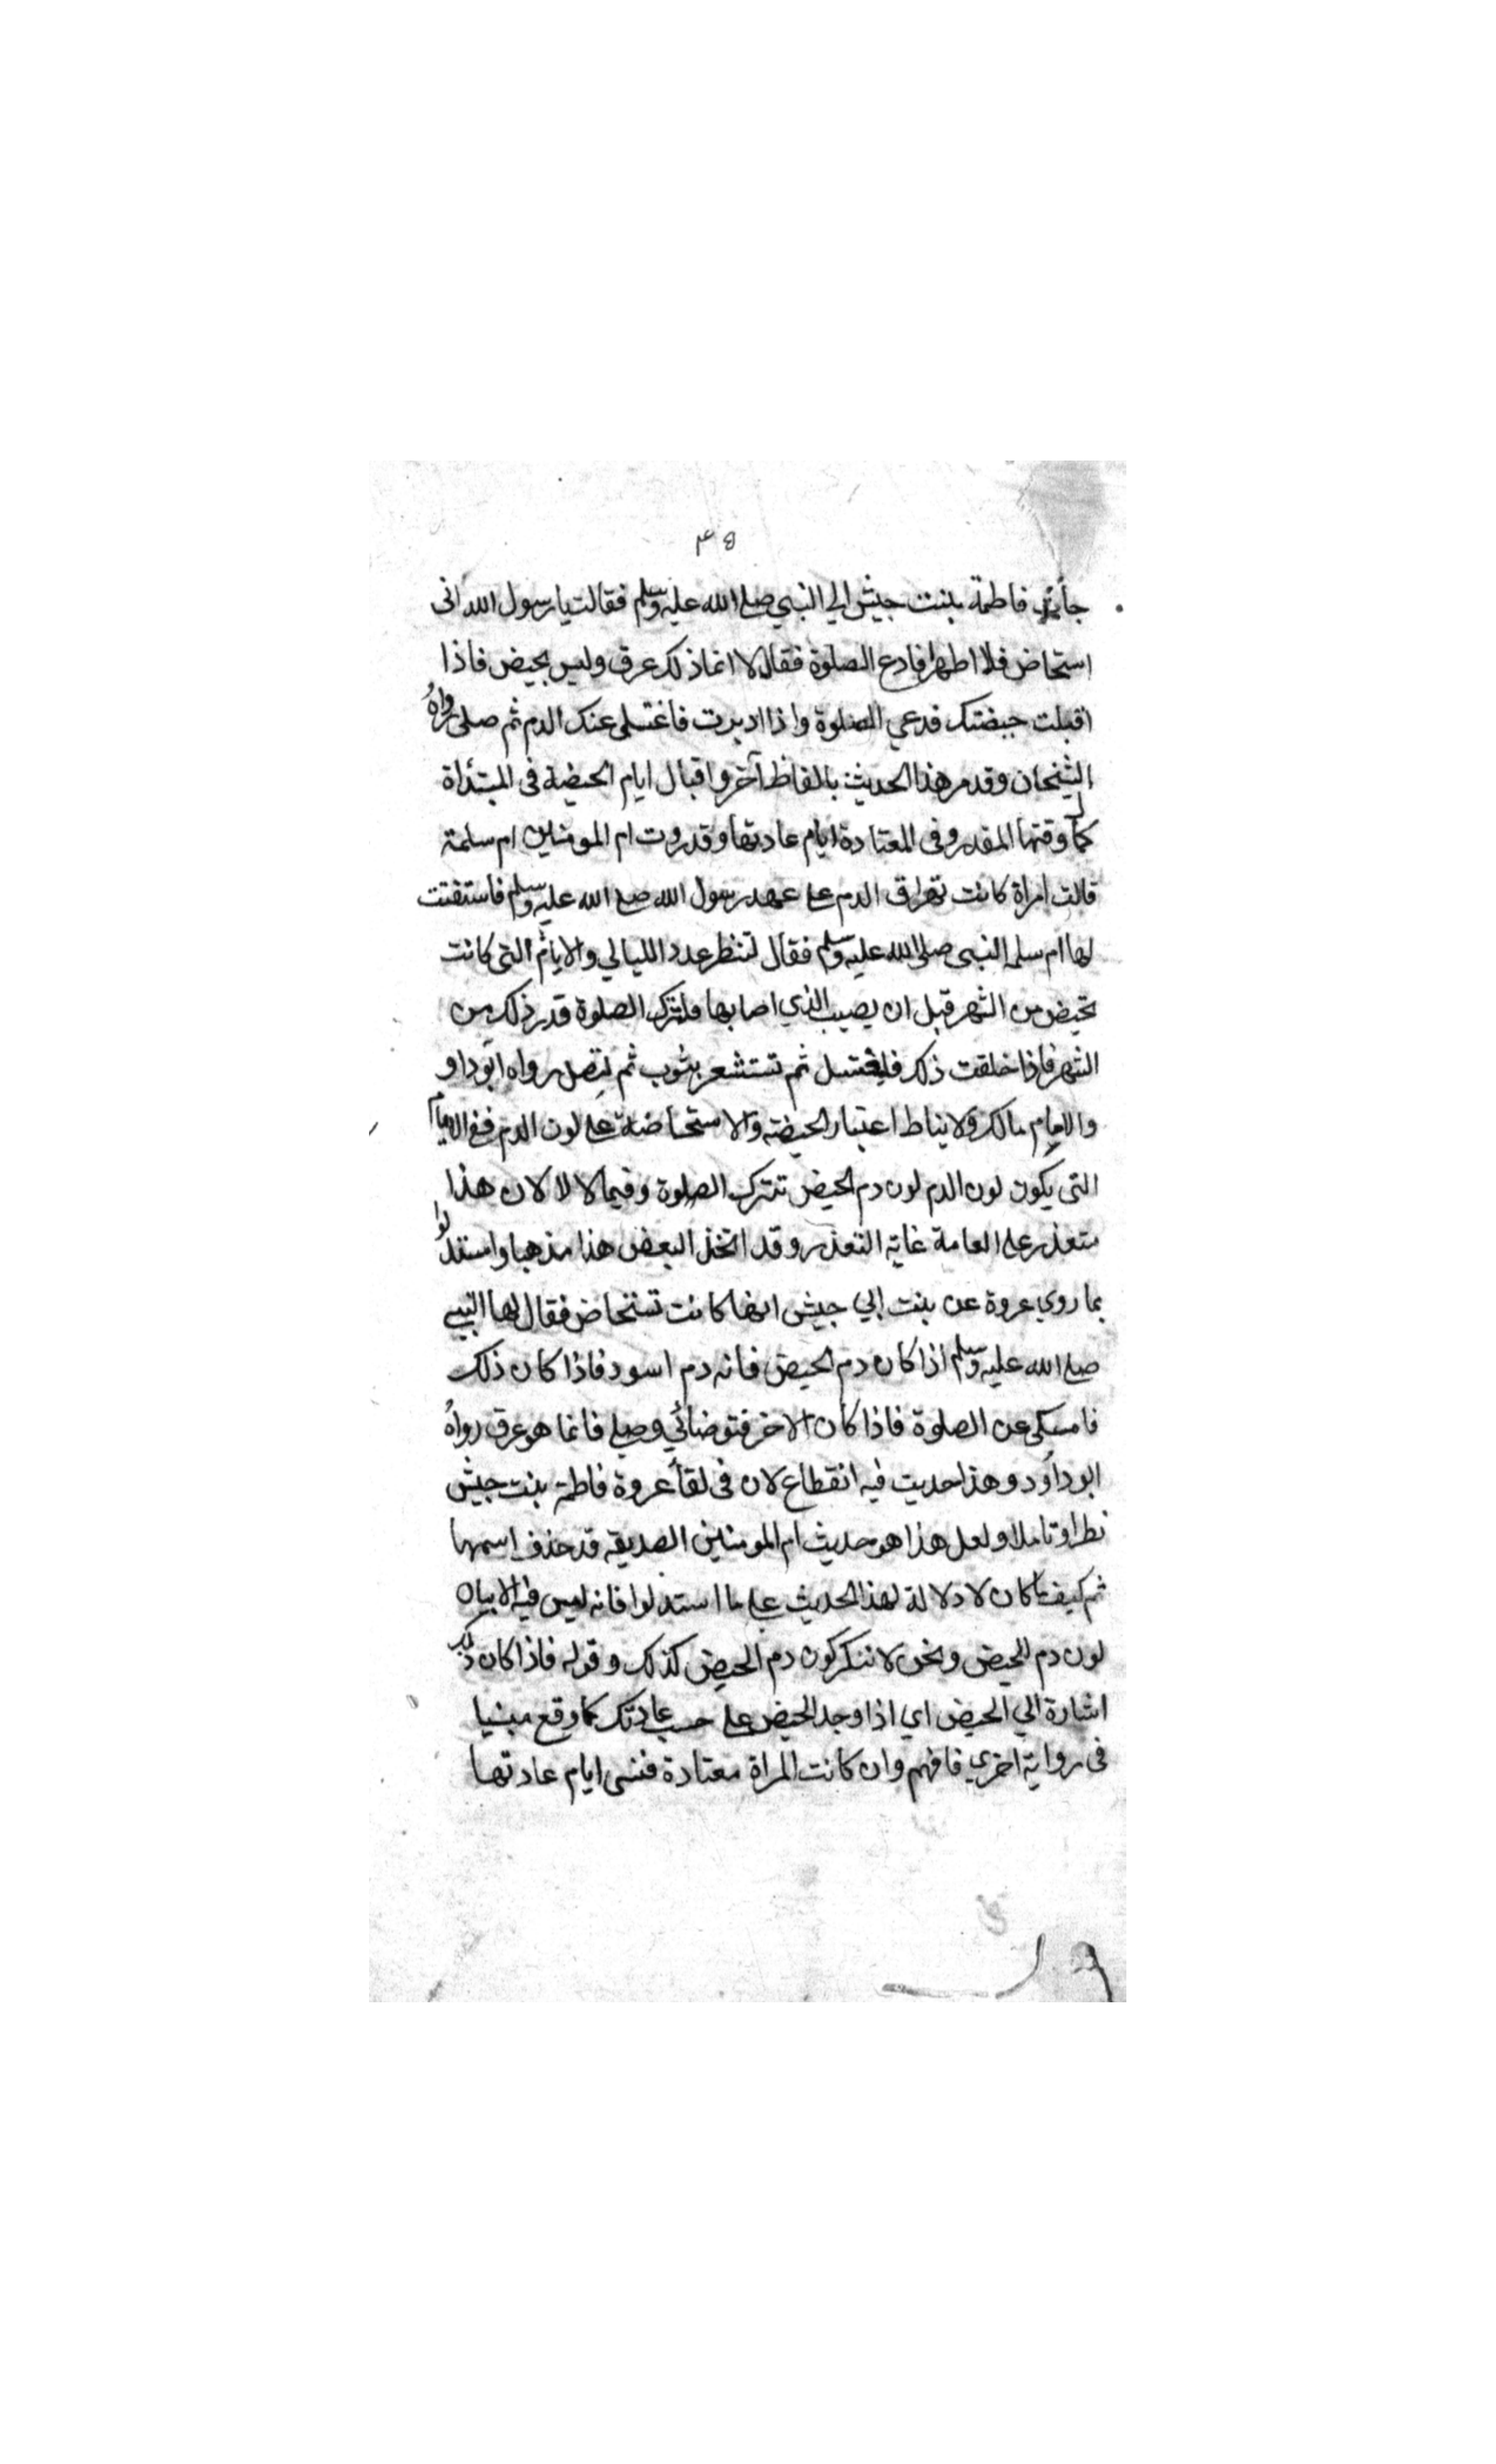 ٤٥
جأت فاطمة بنت جيش الي النبي صلى الله عليه وسلم فقالت يا رسول الله انى
استحاض فلا اطهر افادع الصلوة فقال لا انما ذلك عرق وليس بحيض فاذا
اقبلت حيضتك فدعي الصلوة واذا ادبرت فاغتسلى عنك الدم ثم صلى رواهُ
الشيخان وقد مر هذا الحديث بالفاظ آخر واقبال ايام الحيضة فى المبتدأة
وقتها المقدر وفى المعتادة ايام عادتها وقد روت ام المومنين ام سلمة
قالت امراة كانت تهراق الدم على عهد رسول الله صلى الله عليه وسلم فاستفتت
لها ام سلمه النبى صلى الله عليه وسلم فقال لتنظر عدد الليالي والايام التى كانت
تحيض من الشهر قبل ان يصيب الذي اصابها فلتترك الصلوة قدر ذلك من
الشهر فاذا خلفت ذلك فلتغتسل ثم تستشعر بثوب ثم لتصل رواه ابوداو
والامام مالك ولا يناط اعتبار الحيضة والاستحاضة على لون الدم ففى الايام
التى يكون لون الدم لون دم الحيض تترك الصلوة وفيما لا لا لان هذا
متعذر على العامة غاية التعذر وقد اتخذ البعض هذا مذهبا واستدلوا
بما روي عروة عن بنت ابي جيش انها كانت تستحاض فقال لها النبي
صلى الله عليه وسلم اذا كان دم الحيض فانه دم اسود فاذا كان ذلك
فامسكى عن الصلوة فاذا كان الاخر فتوضائي وصلى فانما هو عرق رواهُ
ابو داود وهذا حديث فيه انقطاع لان فى لقأ عروة فاطمة بنت جيش
نظرا وتاملا ولعل هذا هو حديث ام المومنين الصديقه قد حذف اسمها
ثم كيف ما كان لا دلالة لهذا الحديث على ما استدلوا فانه ليس فيه الا بيان
لون دم الحيض ونحن لا ننكر كون دم الحيض كذلك وقوله فاذا كان ذلك
اشارة الي الحيض اي اذا وجد الحيض على حسب عادتك كما وقع مبنيا
فى رواية اخري فافهم وان كانت المراة معتادة فنسى ايام عادتها